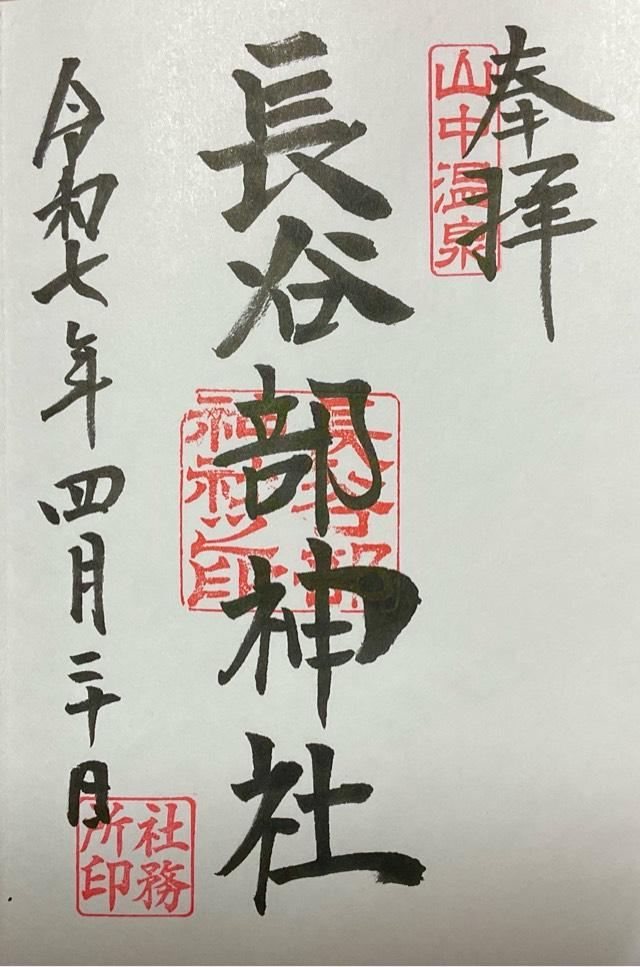 奉拝
山中温泉
長谷部神社
長谷部
神社之印
令和七年四月二十日
社務
所印